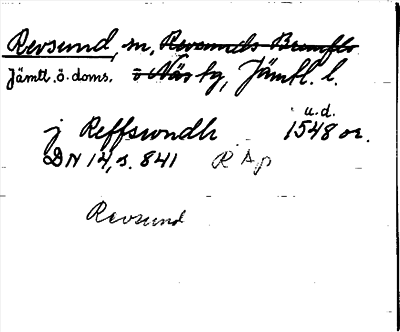 Revsund, sn, Revsunds Brunflo
Jämtl. ö. doms. o Näs tg, Jämtl. l.
u.d.
j Reffswndh 1548 or.
DN 14, s. 841 R Ap
Revsund